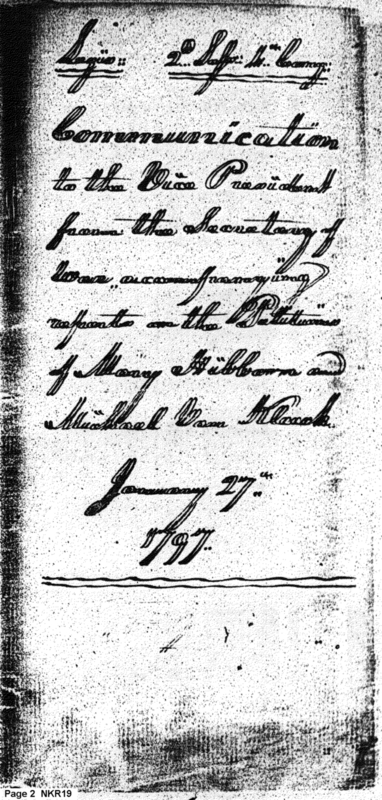 2nd Sess: 4th Cong:
Communication
to the Vice President
from the Secretary of
War accompanying
reports on the Petitions
of Mary Hibborn and
Michael Van Kleek.
January 27th
1797.
Page 2 NKR19